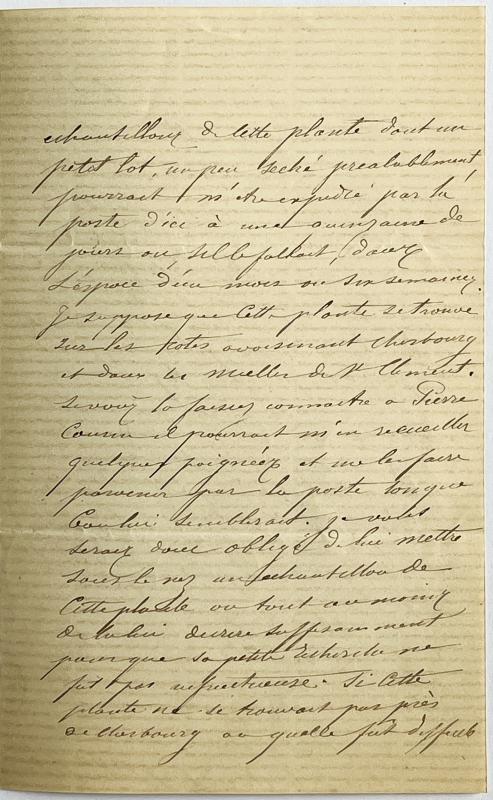 echantillons de cette plante dont un
petit lot, un peu seché prealablement
pourrait m'être expédié par la
poste d'ici à une quinzaine de
jours ou, s'il le fallait, dans
l'éspace d'un mois ou six semaines.
Je suppose que cette plante se trouve
sur les cotes avoisinant cherbourg
et dans les mielles de St Clement.
Si vous la faisiez connaitre a Pierre
il pourrait m'en recueillir
quelques poignées et me les faire
parvenir par la poste lorsque
bon lui semblerait. je vous
serais donc obligé de lui mettre
sous le nez un echantillon de
cette plante ou tout au moins
de la lui decrire suffisamment
pour que sa petite recherche ne
fut pas infructueuse. Si cette
plante ne se trouvait pas près
de cherbourg ou quelle fut difficile